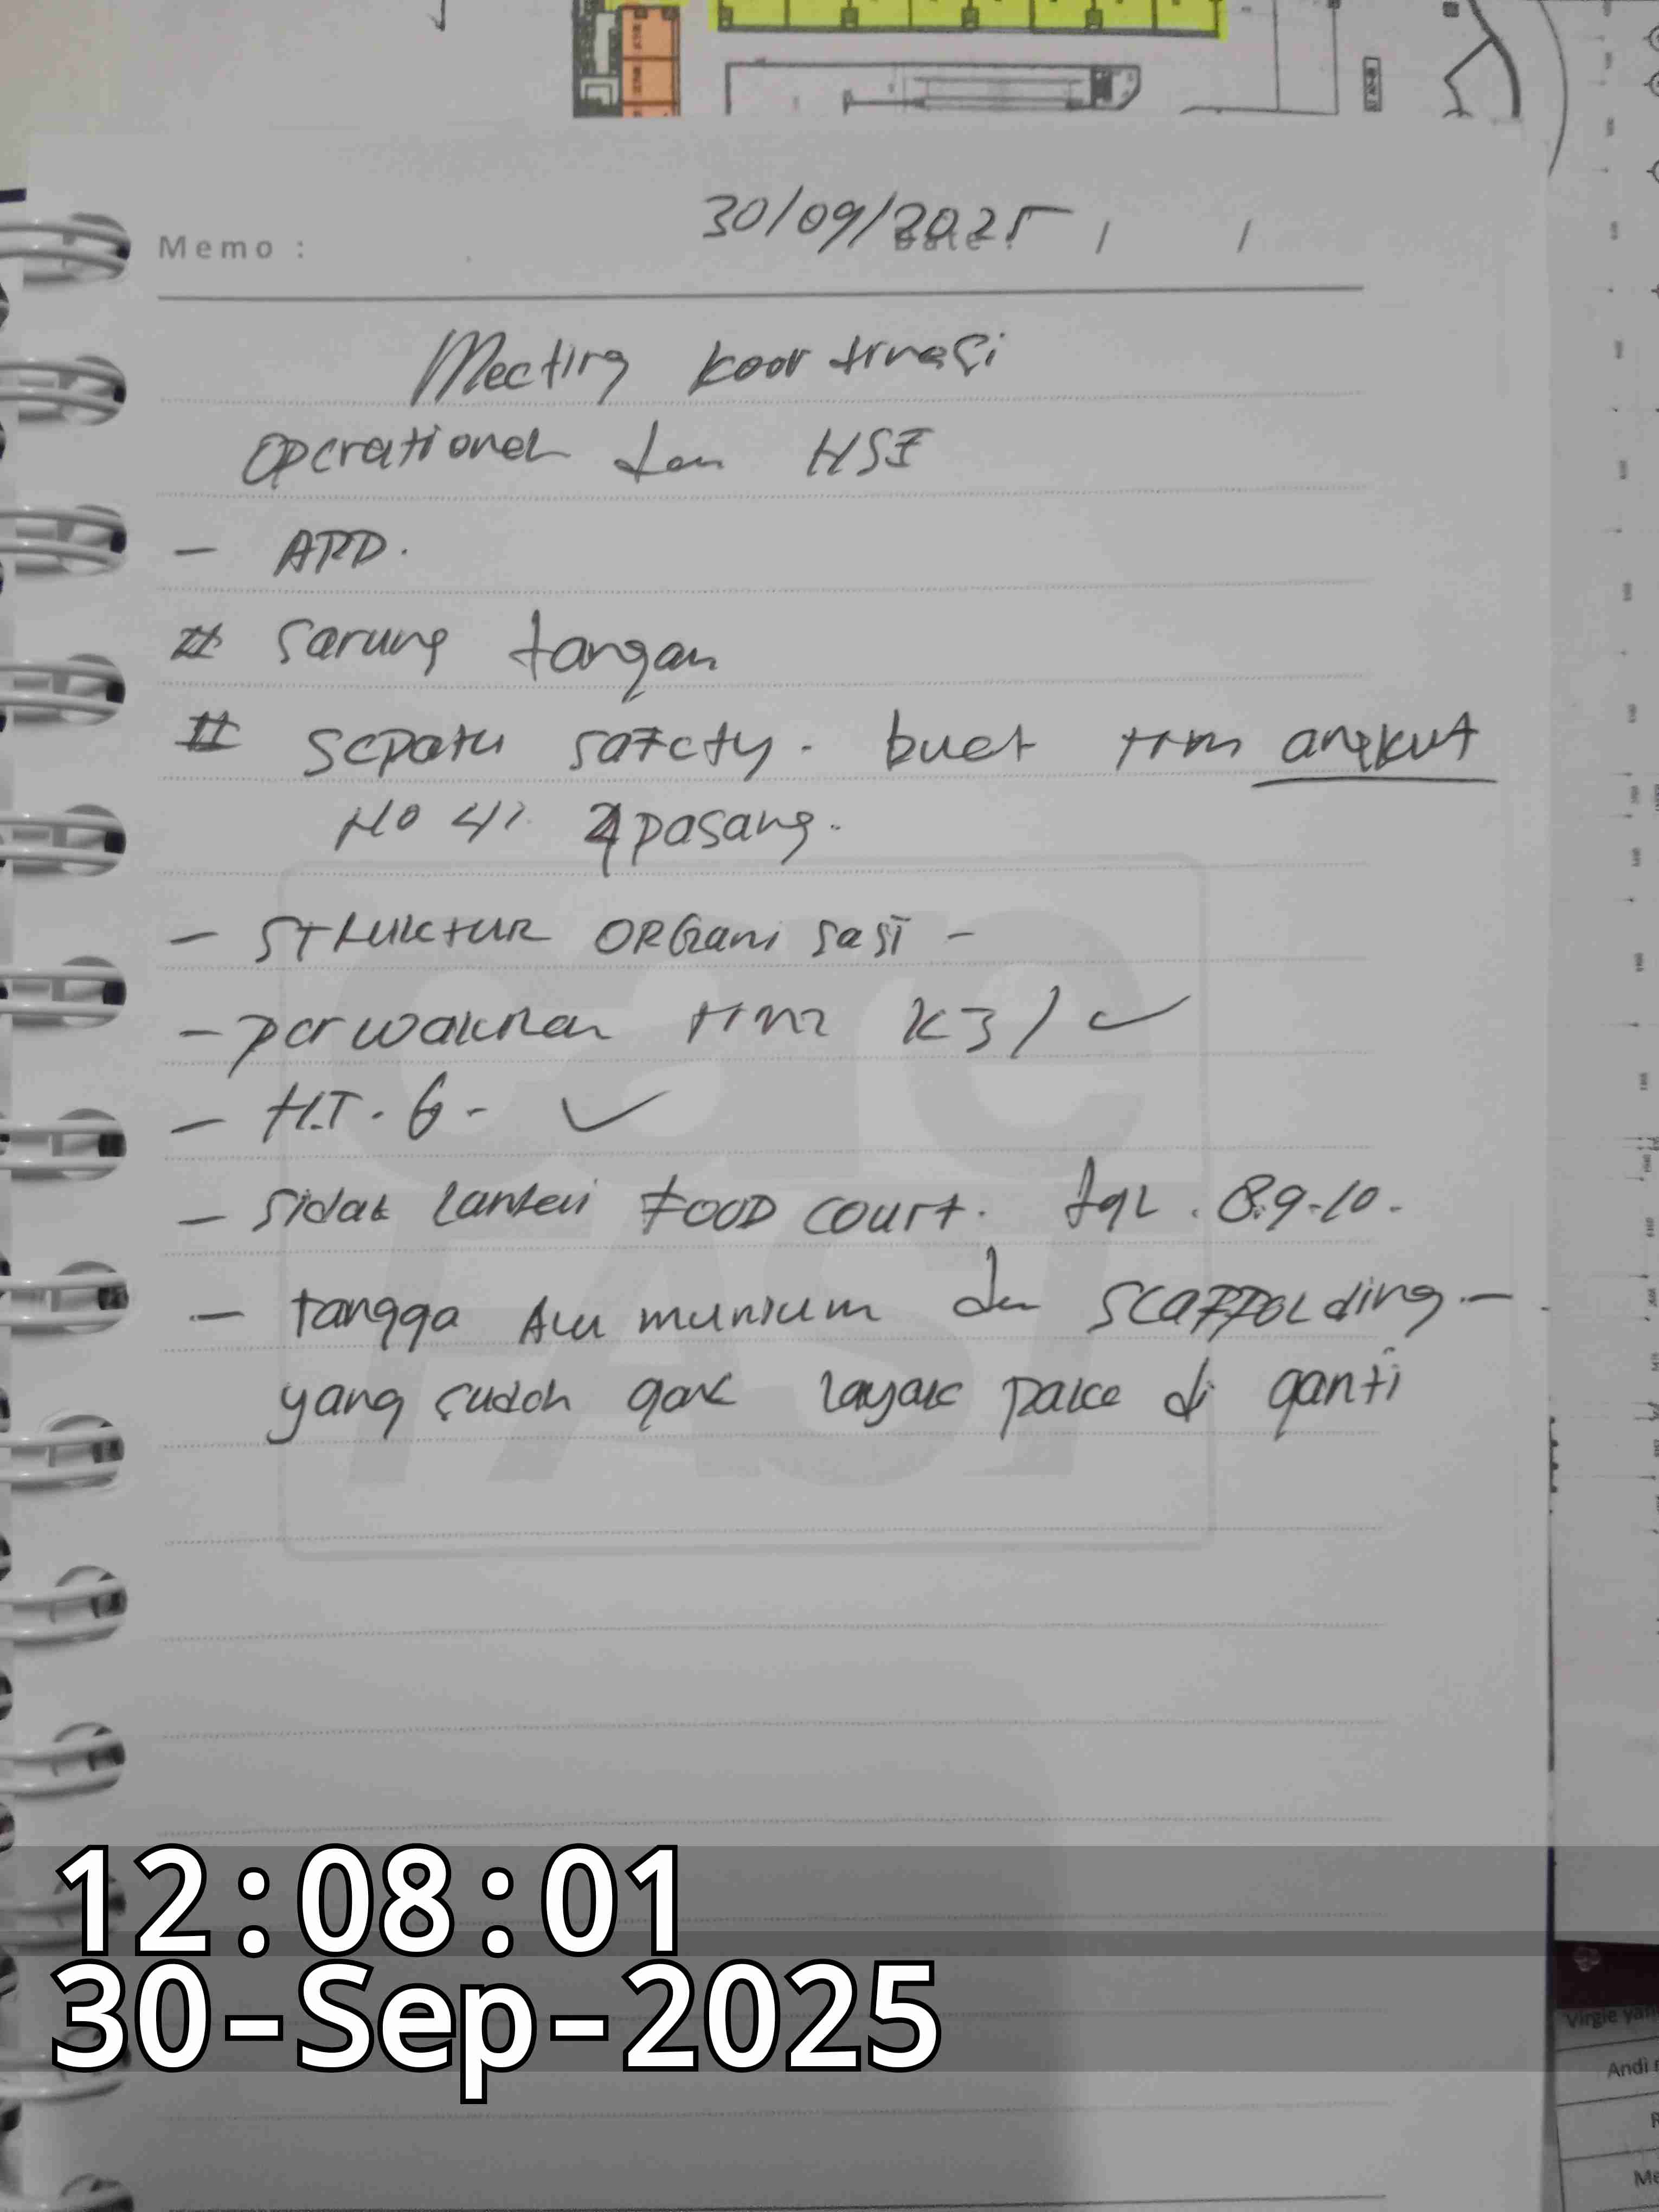 30/09/2025
Memo : Date : / /
Meeting koordinasi
Operational dan HSE
- APD.
# Sarung tangan
# Sepatu safety. buat tim angkut
No 41. 4 pasang.
- STRUKTUR ORGanisasi -
- perwakilan tim K3 / ✓
- H.T. 6 - ✓
- Sidak lantai FOOD court. tgl. 8.9-10.
- tangga Alumunium dan SCAFFOLding. -
yang sudah gak layak pake di ganti
care
FAST
12:08:01
30-Sep-2025
Virgie
Andi